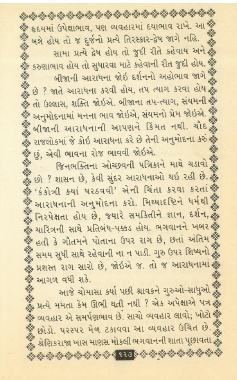 હૃદયમાં ઉપેક્ષાભાવ, પણ વ્યવહારમાં દયાભાવ રાખે. આ
બન્ને હોય તો જ દુર્જનો પ્રત્યે તિરસ્કાર-દ્વેષ જાગે નહિ.
સામા પ્રત્યે દ્વેષ હોય તો જુદી રીતે કહેવાય અને
કરુણાભાવ હોય તો સુધારવા માટે કહેવાની રીત જુદી હોય.
બીજાની આરાધના જોઈ દર્શનનો અહોભાવ જાગે
છે ? જાતે આરાધના કરવી હોય, તપ ત્યાગ કરવા હોય
તો ઉલ્લાસ, શક્તિ જોઈએ. બીજાના તપ-ત્યાગ, સંયમની
અનુમોદનામાં મનના ભાવ જોઈએ, સંયમનો પ્રેમ જોઈએ.
બીજાની આરાધનાની આપણને કિંમત નથી. ચૌદ
રાજલોકમાં જે કોઈ આરાધના કરે છે તેની અનુમોદના કરું
છું, એવી ભાવના રોજ ભાવવી જોઈએ.
જિનભક્તિના ઓચ્છવની પત્રિકાને માથે ચડાવો
છો ? શાસન છે, કેવી સુંદર આરાધનાઓ થઈ રહી છે.
'કંકોત્રી ક્યાં પરઠવવી' એની ચિંતા કરવા કરતાં
આરાધનાની અનુમોદના કરો. મિથ્યાદષ્ટિને ધર્મથી
નિરપેક્ષતા હોય છે, જ્યારે સમકિતીને જ્ઞાન, દર્શન,
ચારિત્રની સાથે પ્રતિબંધ-પક્કડ હોય. ભગવાનને ખબર
હતી કે ગૌતમને પોતાના ઉપર રાગ છે, છતાં અંતિમ
સમય સુધી સાથે રહેવાની ના ન પાડી. ગુરુ ઉપર શિષ્યનો
પ્રશસ્ત રાગ સારો છે, જોઈએ જ. તો જ આરાધનામાં
આગળ વધી શકે.
આજે ચોમાસા કર્યા પછી શ્રાવકને ગુરુઓ-સાધુઓ
પ્રત્યે મમતા કેમ ઊભી થતી નથી ? એક અપેક્ષાએ પત્ર
વ્યવહાર એ સમર્પણભાવ છે. સાચો વ્યવહાર લાવો; ખોટો
છોડો. પરસ્પર મેળ ટકાવવા આ વ્યવહાર ઉચિત છે.
શ્રેણિકરાજા ખાસ માણસ મોકલી ભગવાનની શાતા પૂછાવતા